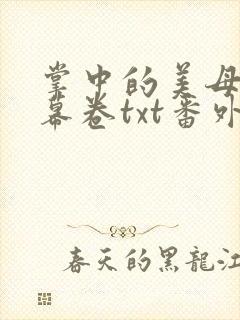 掌中的美母
幕卷txt番外
春天的黑龍江